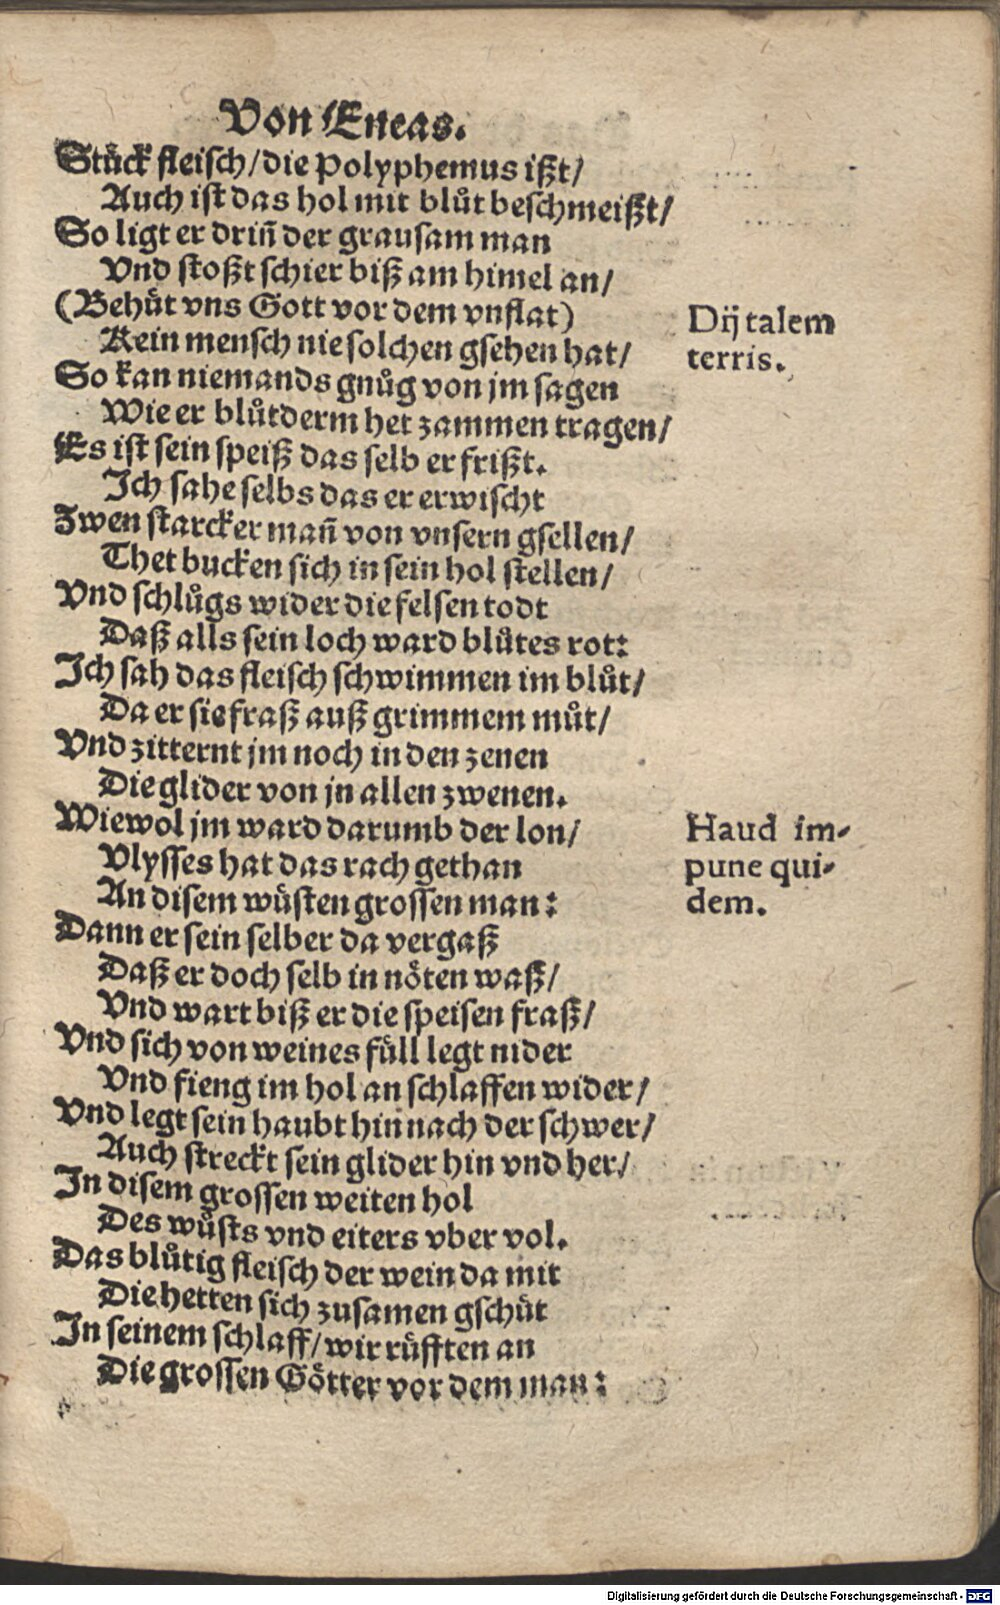 Von Eneas.
Stuͤck fleisch/die Polyphemus ißt/
Auch ist das hol mit bluͦt beschmeißt/
So ligt er driñ der grausam man
Vnd stoßt schier biß am himel an/
(Behuͤt vns Gott vor dem vnflat)
Dij talem
Kein mensch nie solchen gsehen hat/
terris.
So kan niemands gnuͦg von jm sagen
Wie er bluͦtderm het zammen tragen/
Es ist sein speiß das selb er frißt.
Ich sahe selbs das er erwischt
Zwen starcker mañ von vnsern gsellen/
Thet bucken sich in sein hol stellen/
Vnd schluͦgs wider die felsen todt
Daß alls sein loch ward bluͦtes rot:
Ich sah das fleisch schwimmen im bluͦt/
Da er sie fraß auß grimmem muͦt/
Vnd zitternt jm noch in den zenen
Die glider von jn allen zwenen.
Wiewol jm ward darumb der lon/
Haud im-
Vlysses hat das rach gethan
pune qui-
An disem wuͤsten grossen man:
dem.
Dann er sein selber da vergaß
Daß er doch selb in noͤten waß/
Vnd wart biß er die speisen fraß/
Vnd sich von weines fuͤll legt nider
Vnd fieng im hol an schlaffen wider/
Vnd legt sein haubt hin nach der schwer/
Auch streckt sein glider hin vnd her/
In disem grossen weiten hol
Des wuͦsts vnd eiters vber vol.
Das bluͦtig fleisch der wein da mit
Die hetten sich zusamen gschuͤt
In seinem schlaff/wir ruͤfften an
Die grossen Goͤtter vor dem man:
Digitalisierung gefördert durch die Deutsche Forschungsgemeinschaft - DFG